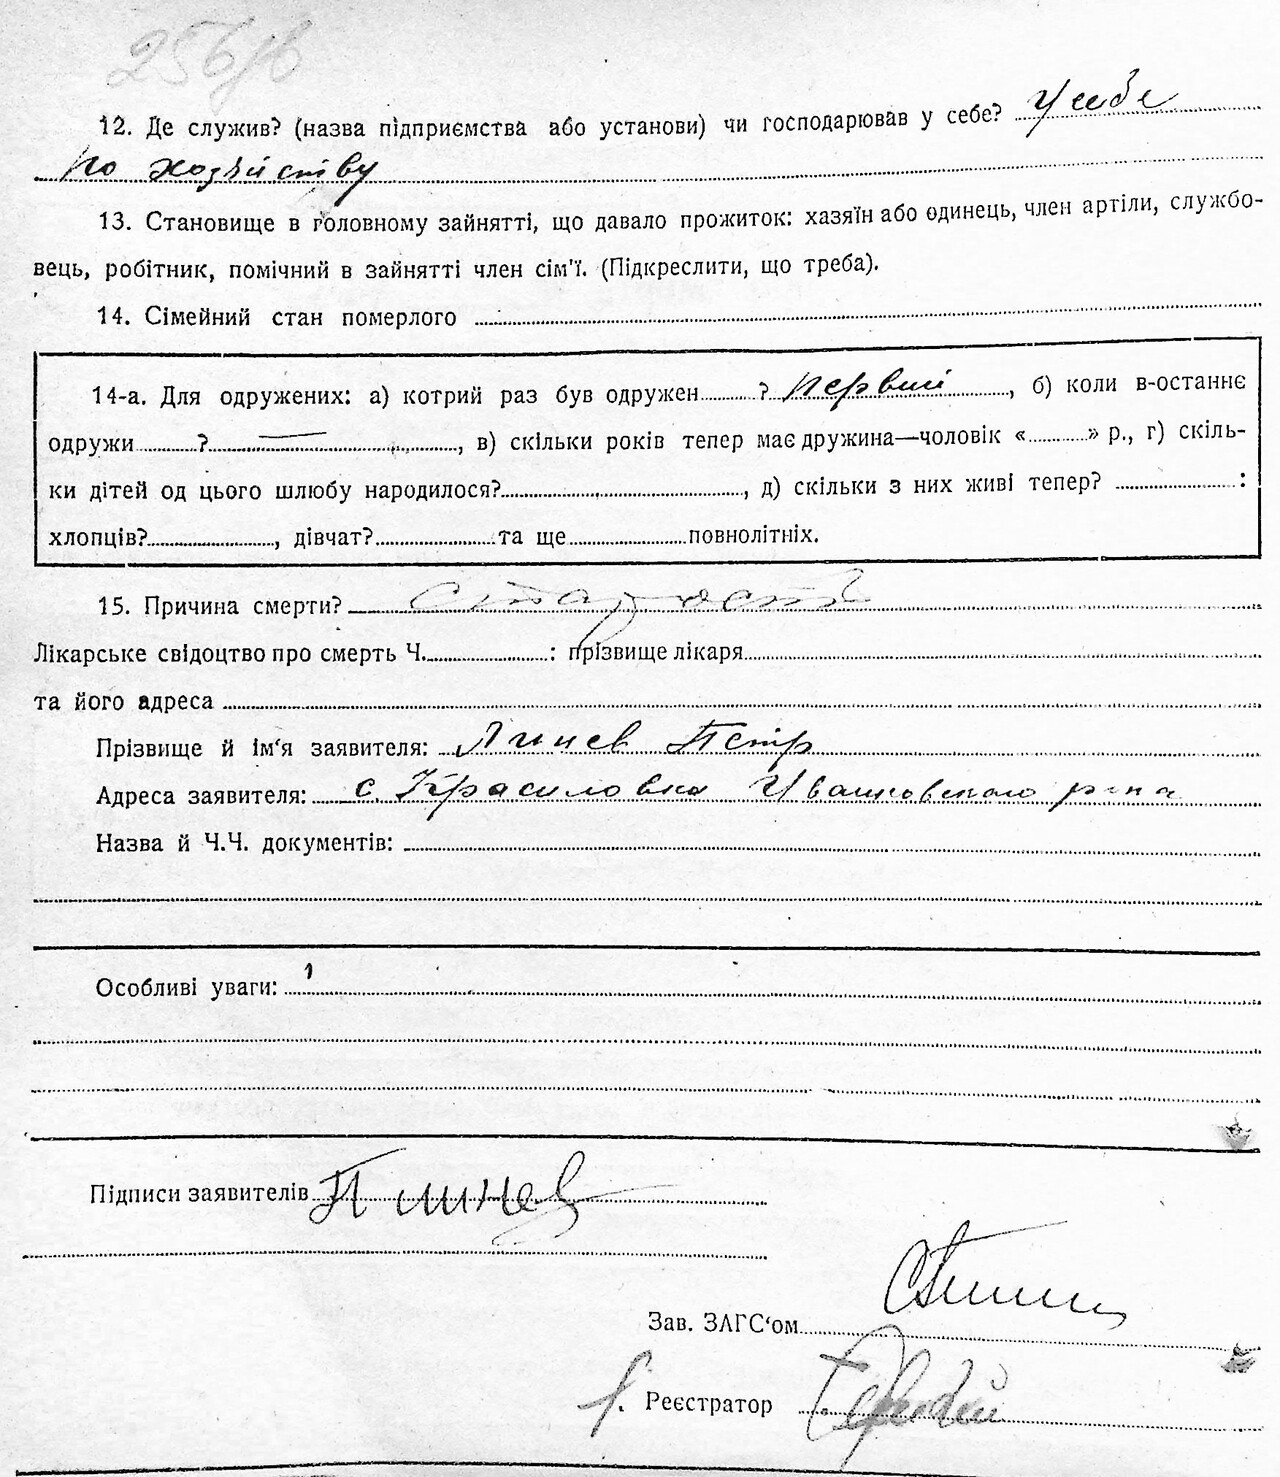 256/в
12. Де служив? (назва підприємства або установи) чи господарював у себе? У себе
по хозяйству
13. Становище в головному зайнятті, що давало прожиток: хазяїн або одинець, член артіли, службо-
вець, робітник, помічний в зайнятті член сім'ї. (Підкреслити, що треба).
14. Сімейний стан померлого
14-а. Для одружених: а) котрий раз був одружен ? первый, б) коли в-останнє
одружи ? —, в) скільки років тепер має дружина—чоловік « » р., г) скіль-
ки дітей од цього шлюбу народилося? , д) скільки з них живі тепер? :
хлопців? , дівчат? та ще повнолітніх.
15. Причина смерти? старость
Лікарське свідоцтво про смерть Ч. : прізвище лікаря
та його адреса
Прізвище й ім'я заявителя: Линев Петр
Адреса заявителя: с. Красиловка Ивановского р-на
Назва й Ч.Ч. документів:
Особливі уваги:
Підписи заявителів П Линев
Зав. ЗАГС'ом
Реєстратор